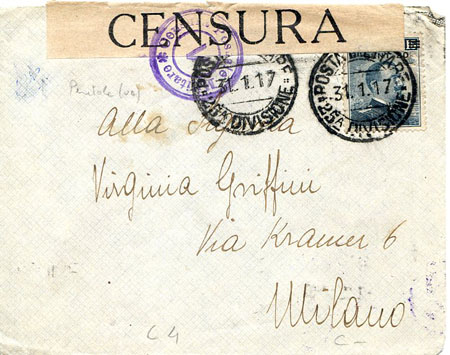 CENSURA
POSTA MILITARE
31.1.17
25A DIVISIONE
POSTA MILITARE
31.1.17
25A DIVISIONE
Alla Signora
Virginia Griffini
Via Kramer 6
Milano
C 4
C -